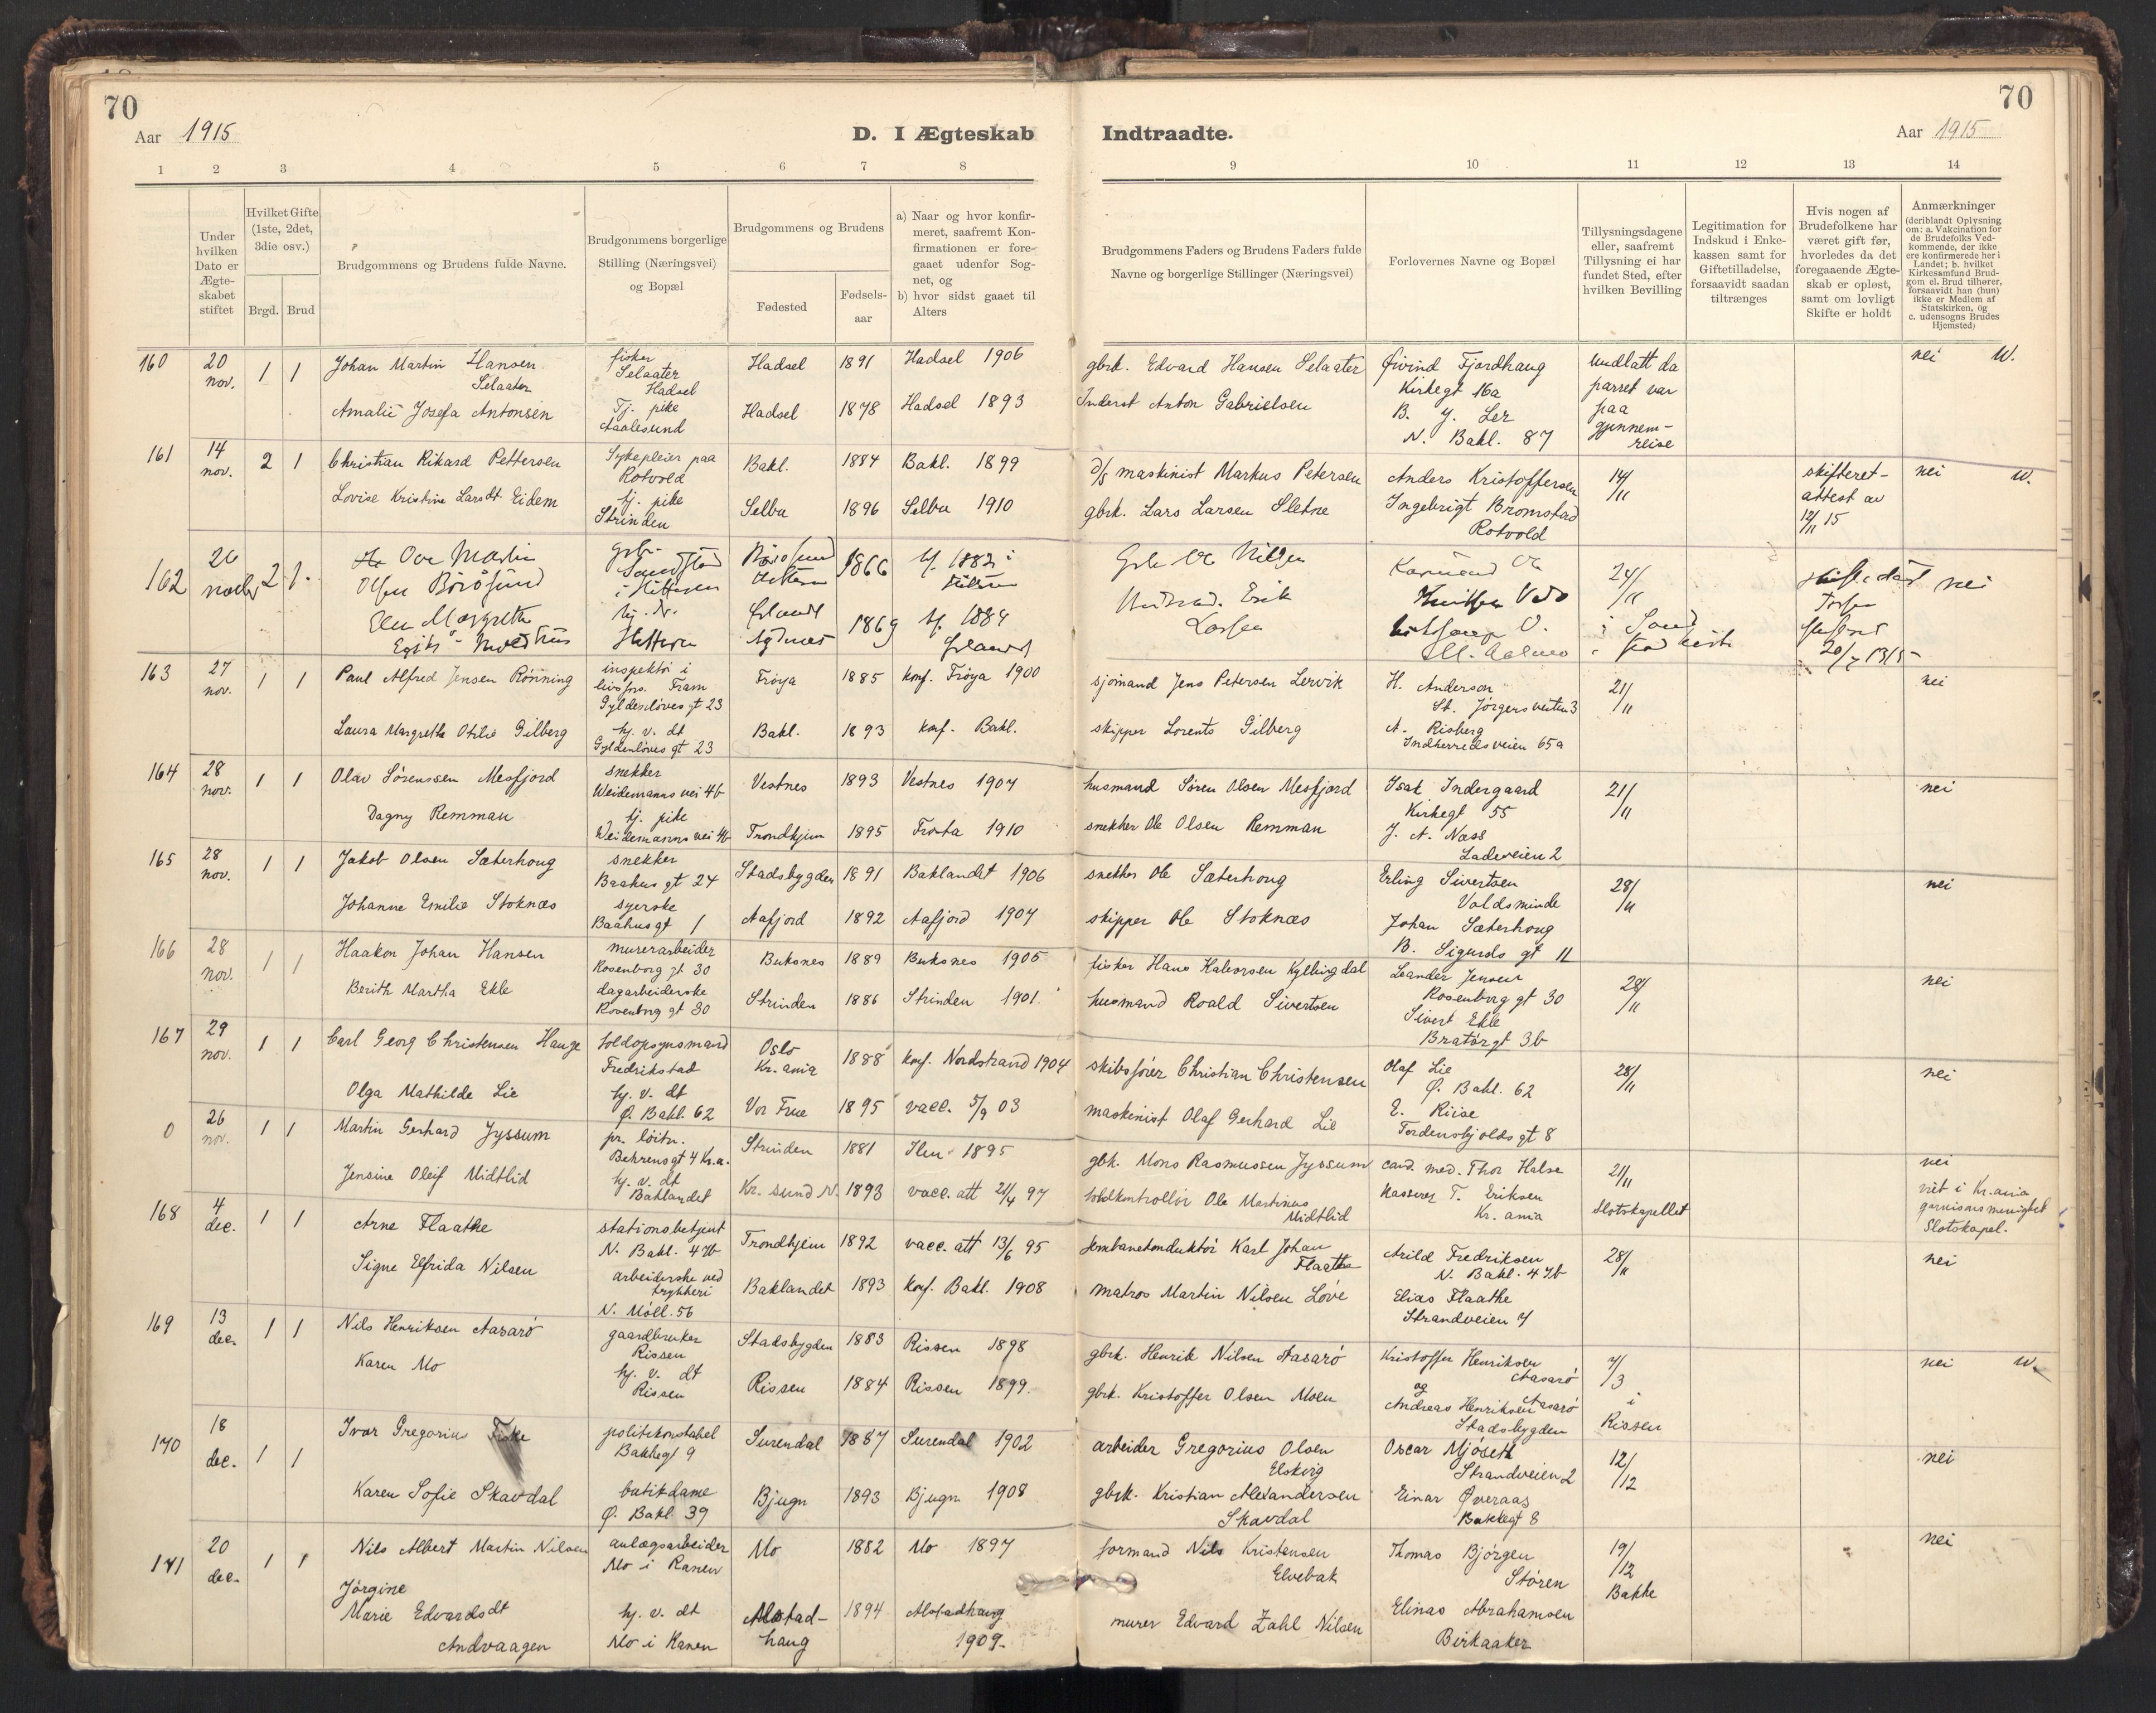 70
70
Aar 1915
D. I Ægteskab Indtraadte.
Aar 1915
1 2 3 4 5 6 7 8 9 10 11 12 13 14
Under hvilken Dato er Ægte-skabet stiftet
Hvilket Gifte (1ste, 2det, 3die osv.)
Brgd. Brud
Brudgommens og Brudens fulde Navne.
Brudgommens borgerlige Stilling (Næringsvei) og Bopæl
Brudgommens og Brudens
Fødested
Fødsels-aar
a) Naar og hvor konfir-meret, saafremt Kon-firmationen er fore-gaaet udenfor Sog-net, og
b) hvor sidst gaaet til Alters
Brudgommens Faders og Brudens Faders fulde Navne og borgerlige Stillinger (Næringsvei)
Forlovernes Navne og Bopæl
Tillysningsdagene eller, saafremt Tillysning ei har fundet Sted, efter hvilken Bevilling
Legitimation for Indskud i Enke-kassen samt for Giftetilladelse, forsaavidt saadan tiltrænges
Hvis nogen af Brudefolkene har været gift før, hvorledes da det foregaaende Ægte-skab er opløst, samt om lovligt Skifte er holdt
Anmærkninger (deriblandt Oplysning om: a. Vakcination for de Brudefolks Ved-kommende, der ikke ere konfirmerede her i Landet; b. hvilket Kirkesamfund Brud-gom el. Brud tilhører, forsaavidt han (hun) ikke er Medlem af Statskirken, og c. udensogns Brudes Hjemsted)
160 20 nov. 1 1 Johan Martin Hansen Selaater fisker Selaater Hadsel Hadsel 1891 Hadsel 1906 gbrk. Edvard Hansen Selaater Øivind Fjordhaug Kirkegt 16a undlatt da parret var paa gjennem-reise nei W.
Amalie Josefa Antonsen Tj. pike Aalesund Hadsel 1878 Hadsel 1893 Inderst Anton Gabrielsen B. J. Ler N. Bakl. 87
161 14 nov. 2 1 Christian Rikard Pettersen Sykepleier paa Rotvold Bakl. 1884 Bakl. 1899 d/s maskinist Markus Petersen Anders Kristoffersen 14/11 skifteret-attest av 12/11 15 nei W.
Lovise Kristine Larsdt Eidem tj. pike Strinden Selbu 1896 Selbu 1910 gbrk. Lars Larsen Sletne Ingebrigt Bromstad Rotvold
162 26 2 1 Ove Martin Olsen Börösund 1866 1882 i 24/11 nei
Margrethe 1869 1884 Erik Larsen
163 27 nov. 1 1 Paul Alfred Jensen Rönning inspektör i livsfors. Fram Gyldenløves gt 23 Frøya 1885 konf. Frøya 1900 sjømand Jens Petersen Lervik H. Anderson St. Jørgensveiten 3 21/11 nei
Laura Margrethe Otilie Gilberg hj. v. dt Gyldenløves gt 23 Bakl. 1893 konf. Bakl. skipper Lorents Gilberg A. Risberg Indherredsveien 65a
164 28 nov. 1 1 Olav Sörenssen Mesfjord snekker Weidemanns vei 4b Vestnes 1893 Vestnes 1907 husmand Sören Olsen Mesfjord Isak Indergaard Kirkegt 55 21/11 nei
Dagny Remman tj. pike Weidemanns vei 4b Trondhjem 1895 Frosta 1910 snekker Ole Olsen Remman J. A. Næss Ladeveien 2
165 28 nov. 1 1 Jakob Olsen Sæterhaug snekker Baahus gt 24 Stadsbygden 1891 Baklandet 1906 snekker Ole Sæterhaug Erling Sivertsen Voldsminde 28/11 nei
Johanne Emilie Stoknæs syerske Baahusgt 1 Aafjord 1892 Aafjord 1907 skipper Ole Stoknæs Johan Sæterhaug B. Sigurds gt 11
166 28 nov. 1 1 Haakon Johan Hansen murerarbeider Rosenborg gt 30 Buksnes 1889 Buksnes 1905 fisker Hans Halvorsen Kyllingdal Leander Jensen Rosenborg gt 30 28/11 nei
Berith Martha Ekle dagarbeiderske Rosenborg gt 30 Strinden 1886 Strinden 1901. husmand Roald Sivertsen Sivert Ekle Bratørgt 3b
167 29 nov. 1 1 Carl Georg Christensen Hauge toldopsynsmand Fredrikstad Oslo Kr.ania 1888 konf. Nordstrand 1904 skibsfører Christian Christensen Olaf Lie Ø. Bakl. 62 28/11 nei
Olga Mathilde Lie hj. v. dt Ø. Bakl. 62 Vor Frue 1895 vacc. 5/9 03 maskinist Olaf Gerhard Lie E. Riise Tordenskjolds gt 8
0 26 nov. 1 1 Martin Gerhard Jyssum pr. löitn. Behrensgt 4 Kr.a. Strinden 1881 Ilen 1895 gbk. Mons Rasmussen Jyssum cand. med. Thor Halse 21/11 Slotskapellet nei viet i Kr.ania garnisonsmenighet Slotskapel.
Jensine Oleif Midtlid hj. v. dt Baklandet Kr.sund N. 1893 vacc. att 21/4 97 toldkontrollör Ole Martinus Midtlid kasserer T. Eriksen Kr.ania
168 4 dec. 1 1 Arne Flaathe stationsbetjent N. Bakl. 47b Trondhjem 1892 vacc. att 13/6 95 jernbanekonduktör Karl Johan Flaathe Arild Fredriksen N. Bakl. 47b 28/11 nei
Signe Elfrida Nilsen arbeiderske ved trykkeri N. Möll. 56 Baklandet 1893 konf. Bakl. 1908 matros Martin Nilsen Löve Elias Flaathe Strandveien 7
169 13 dec. 1 1 Nils Henriksen Aasarö gaardbruker Rissen Stadsbygden 1883 Rissen 1898 gbrk. Henrik Nilsen Aasarö Kristoffer Henriksen Aasarö og 7/3 i Rissen nei W.
Karen Mo hj. v. dt Rissen Rissen 1884 Rissen 1899. gbrk. Kristoffer Olsen Moen Andreas Henriksen Aasarö Stadsbygden
170 18 dec. 1 1 Ivar Gregorius Fiske politikonstabel Bakkegt 9 Surendal 1887 Surendal 1902 arbeider Gregorius Olsen Elskvig Oscar Mjøseth Strandveien 2 12/12 nei
Karen Sofie Skavdal butikdame Ø. Bakl. 39 Bjugn 1893 Bjugn 1908 gbrk. Kristian Alexandersen Skavdal Einar Øveraas Bakkegt 8
171 20 dec. 1 1 Nils Albert Martin Nilsen anlægsarbeider Mo i Ranen Mo 1882 Mo 1897 formand Nils Kristensen Elvebak Thomas Bjørgen Støren 19/12 Bakke nei
Jørgine Marie Edvardsdt Andvaagen hj. v. dt Mo i Ranen Alstad-haug 1894 Alstadhaug 1909. murer Edvard Zahl Nilsen Elinas Abrahamsen Birkaaker